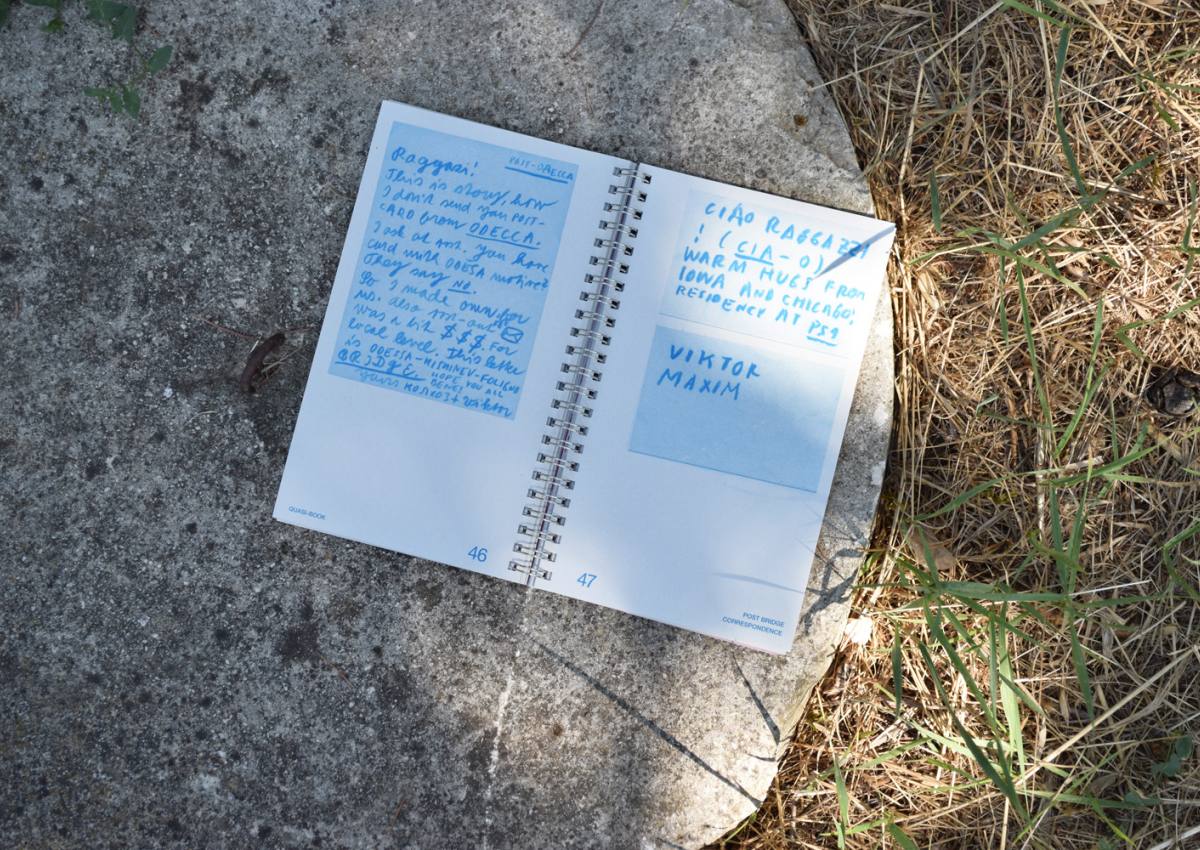 Raggazi!
POST-ODECCA
This is story, how
I don't send you POST-
CARD from ODECCA.
I ask at you have
card with ODESA
They say NO.
So I made own for
us. also
was a bit $$$ for
local level. This letter
is ODESSA-KISHINEV-FOLIGNO
BRIDGE. HOPE YOU ALL
yours Viktor
QUASI-BOOK
46
CIAO RAGGAZZI
! (CIA-O)
WARM HUGS FROM
IOWA AND CHICAGO!
RESIDENCY AT PS1
VIKTOR
MAXIM
47
POST BRIDGE
CORRESPONDENCE